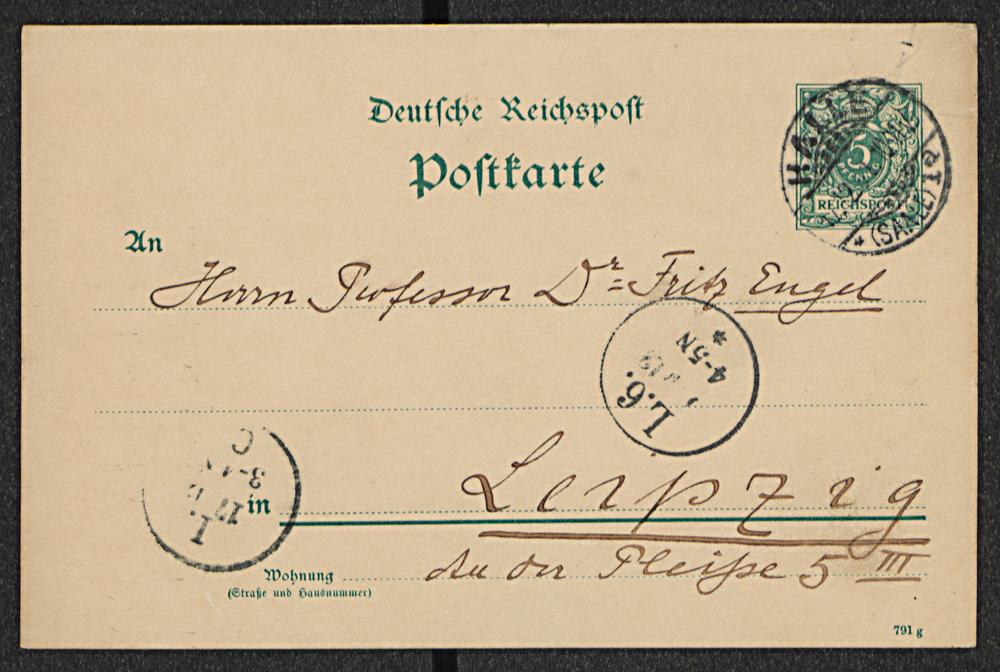 Deutsche Reichspost
Postkarte
5
PFENNIG
REICHSPOST
HALLE
* (SAALE)
An
Herrn Professor Dr. Fritz Engel
L.6.
12
4-5N
*
in Leipzig
Wohnung An der Pleiße 5 III
(Straße und Hausnummer)
791 g